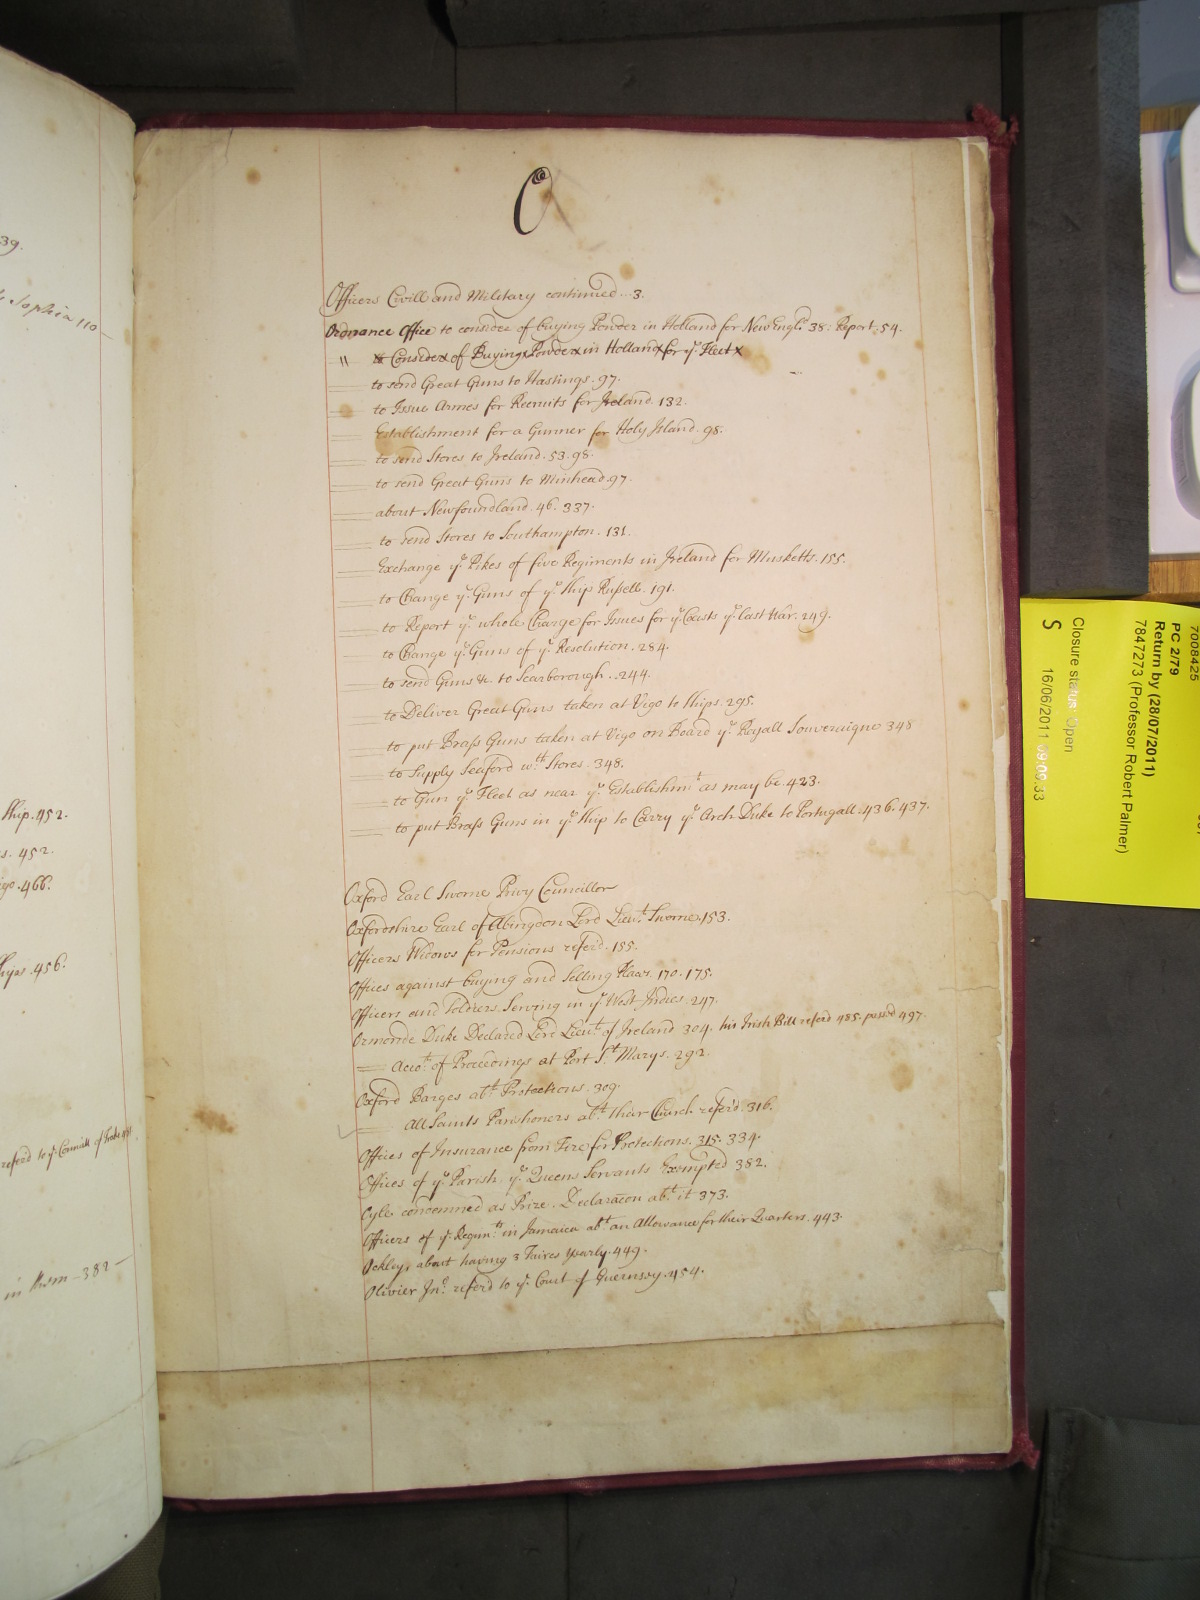 39.
Sophia 110
Ship. 452.
s. 452.
igo. 466.
456.
referd to ye. Committ of Trade
in them - 382 -
O
Officers Civill and Military continued...3.
Ordnance Office to consider of buying Powder in Holland for New Engld. 38. Report. 54.
" to Consider of Buying Powder in Holland for ye. Fleet
to send Great Guns to Hastings. 97.
to Issue Armes for Recruits for Ireland. 132.
Establishment for a Gunner for Holy Island. 98.
to send Stores to Ireland. 53. 98.
to send Great Guns to Minhead. 97.
about Newfoundland. 46. 337.
to send Stores to Southampton. 131.
Exchange ye. Pikes of five Regiments in Ireland for Musketts. 155.
to Change ye. Guns of ye. Ship Russell. 191.
to Report ye. whole Charge for Issues for ye. Coasts ye. last War. 249.
to Change ye. Guns of ye. Resolution. 284.
to send Guns &c. to Scarborough. 244.
to Deliver Great Guns taken at Vigo to Ships. 295.
to put Brass Guns taken at Vigo on Board ye. Royall Souveraigne 348
to Supply Seaford wth. Stores. 348.
to Gun ye. Fleet as near ye. Establishmt. as may be. 423.
to put Brass Guns in ye. Ship to Carry ye. Arch Duke to Portugall. 436. 437.
Oxford Earl Sworne Privy Councillor
Oxfordshire Earl of Abingdon Lord Lieut. Sworne. 153.
Officers Widows for Pensions referd. 155.
Offices against buying and Selling Places. 170. 175.
Officers and Soldiers Serving in ye. West Indies. 247.
Ormonde Duke Declared Lord Lieut. of Ireland 304. his Irish Bill referd 485. passed 497.
Accot. of Proceedings at Port St. Marys. 292.
Oxford Barges abt. Protections. 309.
All Saints Parishoners abt. their Church referd. 316.
Offices of Insurance from Fire for Protections. 315. 334.
Offices of ye. Parish, ye. Queens Servants Exempted 382.
Oyle condemned as Prize. Declaracon abt. it 373.
Officers of ye. Regimts. in Jamaica abt. an Allowance for their Quarters. 443.
Ockley, about having 3 Faires yearly. 449.
Olivier Jno. referd to ye. Court of Guernsey. 454.
7008425
PC 2/79
Return by (28/07/2011)
7847273 (Professor Robert Palmer)
Closure status: Open
S 16/06/2011 09:09:33